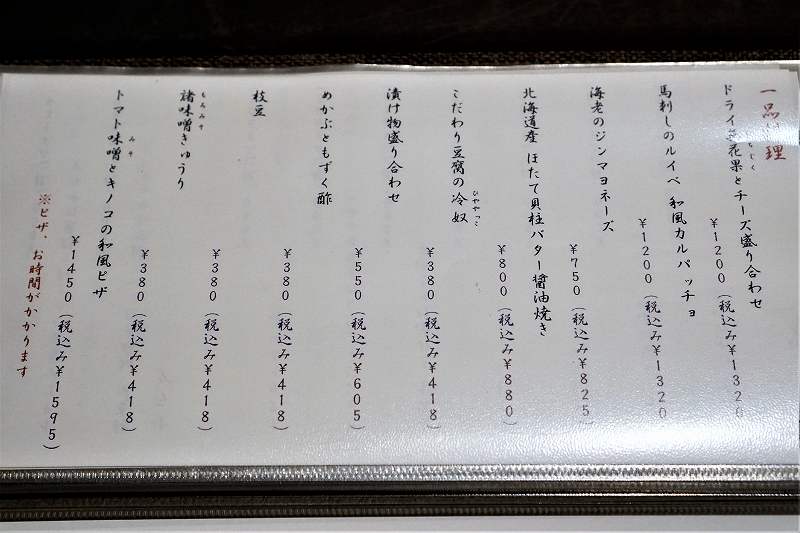 一品料理
ドライ無花果とチーズ盛り合わせ
¥1200(税込み¥1320
馬刺しのルイベ 和風カルパッチョ
¥1200(税込み¥1320)
海老のジンマヨネーズ
¥750(税込み¥825)
北海道産 ほたて貝柱バター醤油焼き
¥800(税込み¥880)
こだわり豆腐の冷奴
ひややっこ
¥380(税込み¥418)
漬け物盛り合わせ
¥550(税込み¥605)
めかぶともずく酢
¥380(税込み¥418)
枝豆
¥380(税込み¥418)
諸味噌きゅうり
もろみそ
¥380(税込み¥418)
トマト味噌とキノコの和風ピザ
みそ
¥1450(税込み¥1595)
※ピザ、お時間がかかります